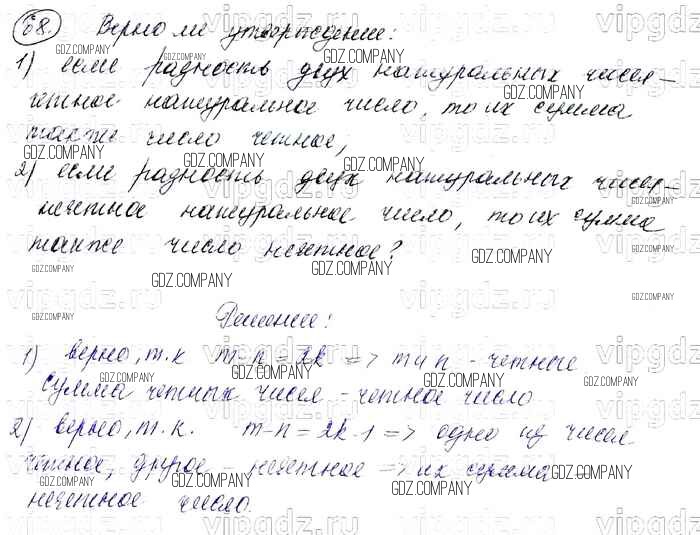 68. Верно ли утверждение:
1) если разность двух натуральных чисел –
четное натуральное число, то их сумма
также число четное;
2) если разность двух натуральных чисел –
нечетное натуральное число, то их сумма
также число нечетное?
Решение:
1) верно, т.к m-n = 2k => m и n - четные
сумма четных чисел - четное число
2) верно, т.к. m-n = 2k-1 => одно из чисел
четное, другое - нечетное => их сумма –
нечетное число.